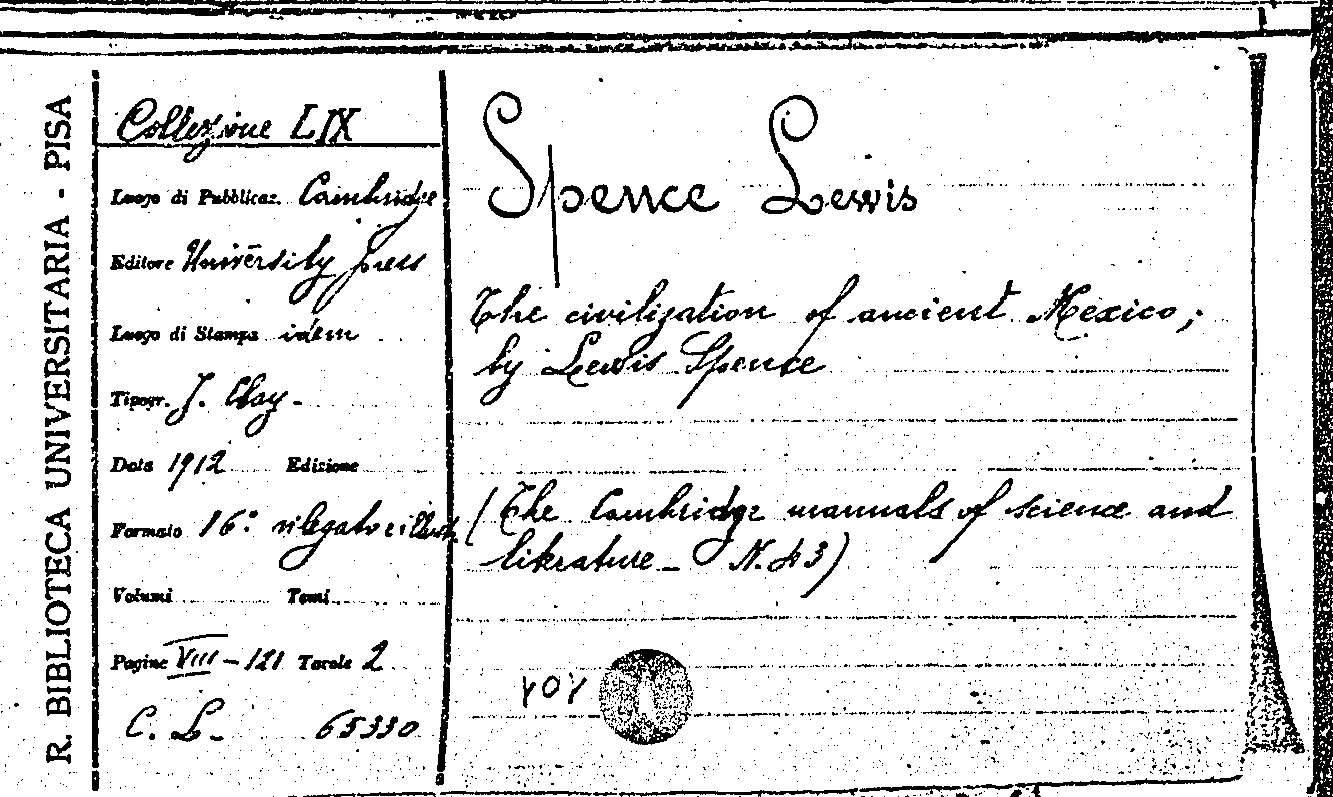 R. BIBLIOTECA UNIVERSITARIA - PISA
Collezione LIX
Luogo di Pubblicaz. Cambridge
Editore University press
Luogo di Stampa idem
Tipogr. J. Clay -
Data 1912 Edizione
Formato 16° rilegato illustr.
Volumi Tomi
Pagine VIII - 121 Tavole 2
C. L. 65330
Spence Lewis
The civilization of ancient Mexico;
by Lewis Spence
(The Cambridge manuals of science and
literature - N. 43)